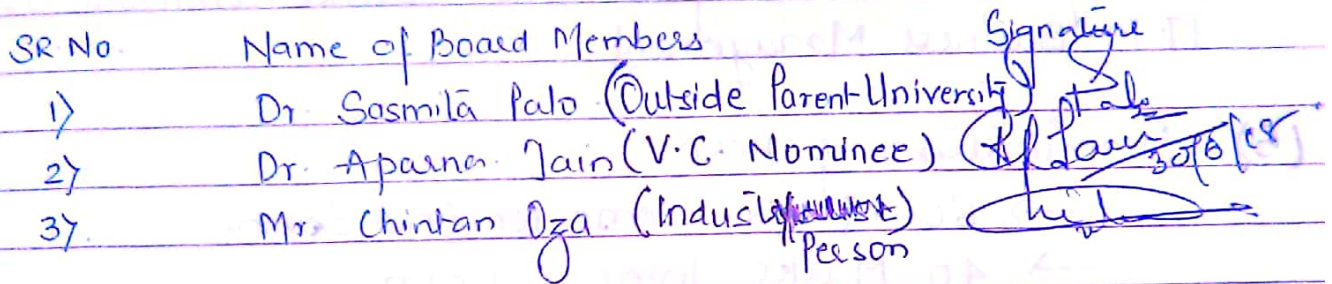 SR No Name of Board Members Signature
1) Dr Sasmitā Palo (Outside Parent-University) Palo
2) Dr. Aparna Jain (V.C. Nominee) 30/6/18
3) Mr. Chintan Oza (Industry Person)